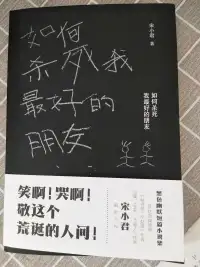 宋小君 著
如何
杀死我
最好的
朋友
如何杀死
我最好的朋友
笑啊!哭啊!
敬这个
荒诞的人间!
宋小君
黑色幽默短篇小说集